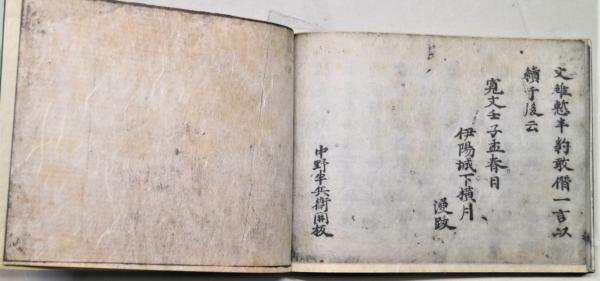 文雖慙半豹敢借一言以
續于後云
寛文壬子孟春日
伊陽城下横月
漫跋
中野半兵衛開板